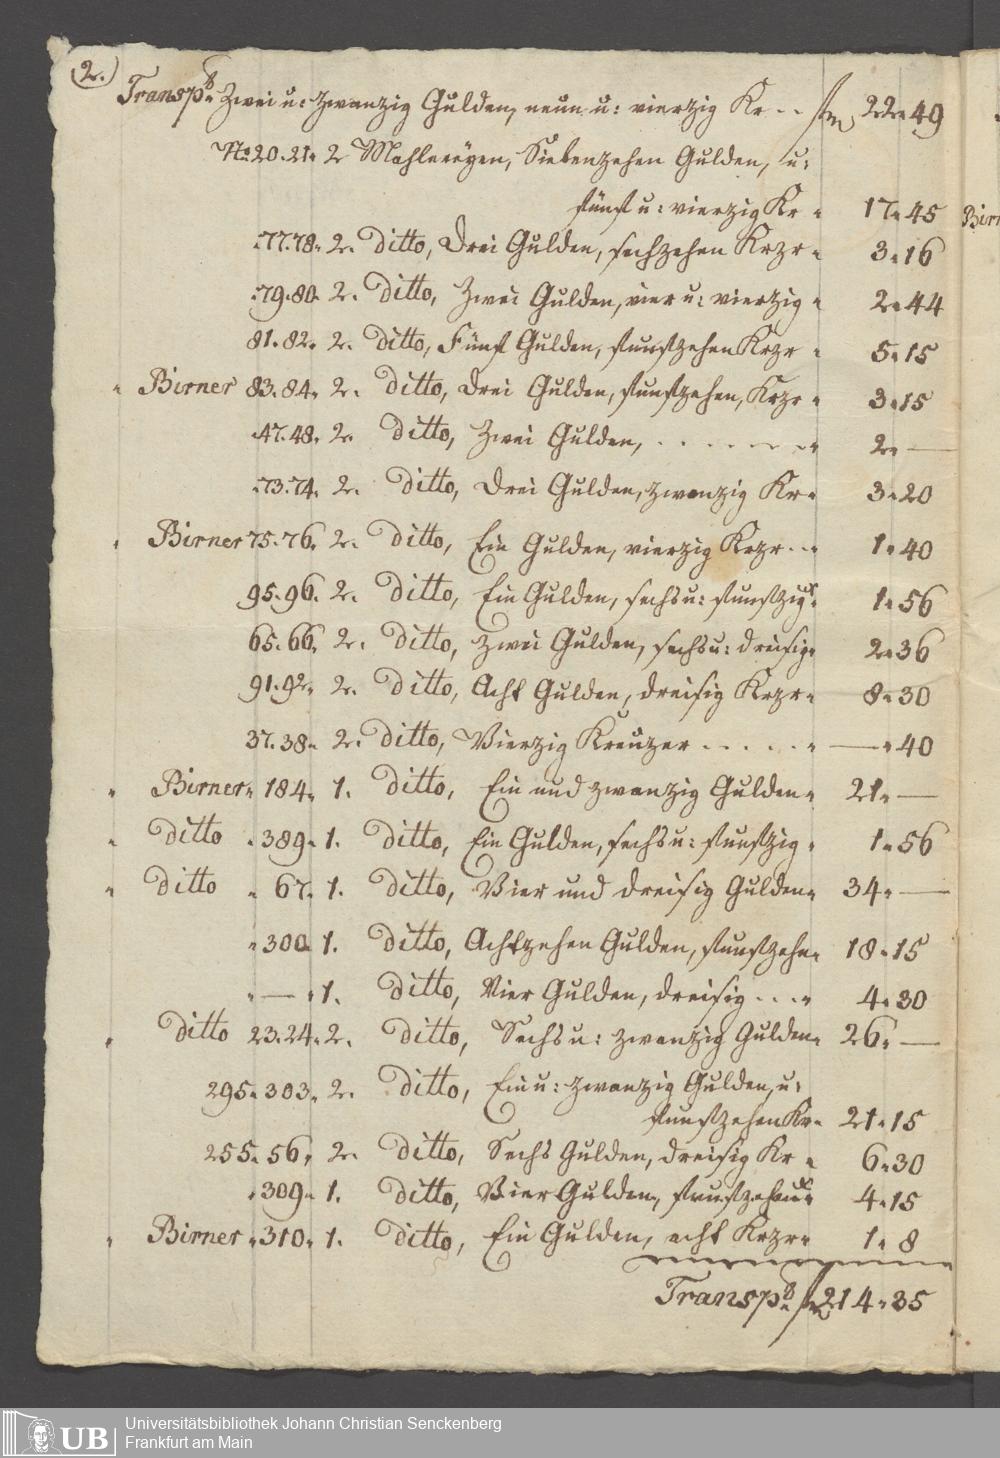 (2.)
Transp.t Zwei u: zwanzig Gulden, neun u: vierzig Kr - - fl 22 „ 49
No: 20. 21. 2 Mahlereyen, Siebenzehen Gulden, u:
fünf u: vierzig Kr „ 17 „ 45
„ 77. 78. 2. ditto, Drei Gulden, sechzehen Krzr „ 3 „ 16
„ 79. 80. 2. ditto, Zwei Gulden, vier u: vierzig „ 2 „ 44
81. 82. 2. ditto, Fünf Gulden, funfzehen Krzr „ 5 „ 15
„ Birner 83. 84. 2. ditto, Drei Gulden, funfzehen, Krzr „ 3 „ 15
„ 47. 48. 2. ditto, Zwei Gulden, - - - - - - „ 2 „ —
„ 73. 74. 2. ditto, Drei Gulden, zwanzig Kr „ 3 „ 20
„ Birner 75. 76. 2. ditto, Ein Gulden, vierzig Krzr - - „ 1 „ 40
95. 96. 2. ditto, Ein Gulden, sechs u: funfzig „ 1 „ 56
65. 66. 2. ditto, Zwei Gulden, sechs u: dreisig „ 2 „ 36
91. 92. 2. ditto, Acht Gulden, dreisig Krzr „ 8 „ 30
37. 38. 2. ditto, Vierzig Kreuzer - - - - - „ — „ 40
„ Birner „ 184 „ 1. ditto, Ein und zwanzig Gulden „ 21 „ —
„ ditto „ 389 „ 1. ditto, Ein Gulden, sechs u: funfzig „ 1 „ 56
„ ditto „ 67 „ 1. ditto, Vier und dreisig Gulden „ 34 „ —
„ 300 1. ditto, Achtzehen Gulden, funfzehn „ 18 „ 15
„ — „ 1. ditto, Vier Gulden, dreisig - - - „ 4 „ 30
„ ditto 23. 24. 2. ditto, Sechs u: zwanzig Gulden „ 26 „ —
295 „ 303 „ 2. ditto, Ein u: zwanzig Gulden, u:
funfzehen Kr „ 21 „ 15
255 „ 56 „ 2. ditto, Sechs Gulden, dreisig Kr „ 6 „ 30
„ 309 „ 1. ditto, Vier Gulden, funfzehen „ 4 „ 15
„ Birner „ 310 „ 1. ditto, Ein Gulden, acht Krzr „ 1 „ 8
Transp.t fl 214 „ 35
UB
Universitätsbibliothek Johann Christian Senckenberg
Frankfurt am Main